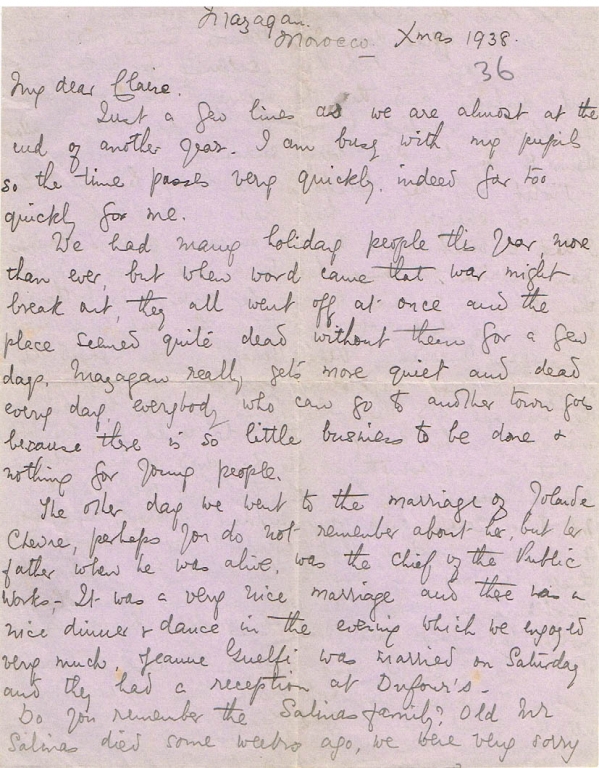 Mazagan.
Morocco Xmas 1938.
36
My dear Claire.
Just a few lines as we are almost at the
end of another year. I am busy with my pupils
so the time passes very quickly. indeed far too
quickly for me.
We had many holiday people this year, more
than ever, but when word came that war might
break out, they all went off at once and the
place seemed quite dead without them for a few
days. Mazagan really gets more quiet and dead
every day, everybody who can go to another town goes
because there is so little business to be done +
nothing for young people.
The other day we went to the marriage of Yolande
perhaps you do not remember about her, but her
father when he was alive, was the Chief of the Public
Works. It was a very nice marriage and there was a
nice dinner + dance in the evening which we enjoyed
very much. Jeanne Guelfi was married on Saturday
and they had a reception at Dufour's.
Do you remember the Salinas family? Old Mr
Salinas died some weeks ago, we were very sorry